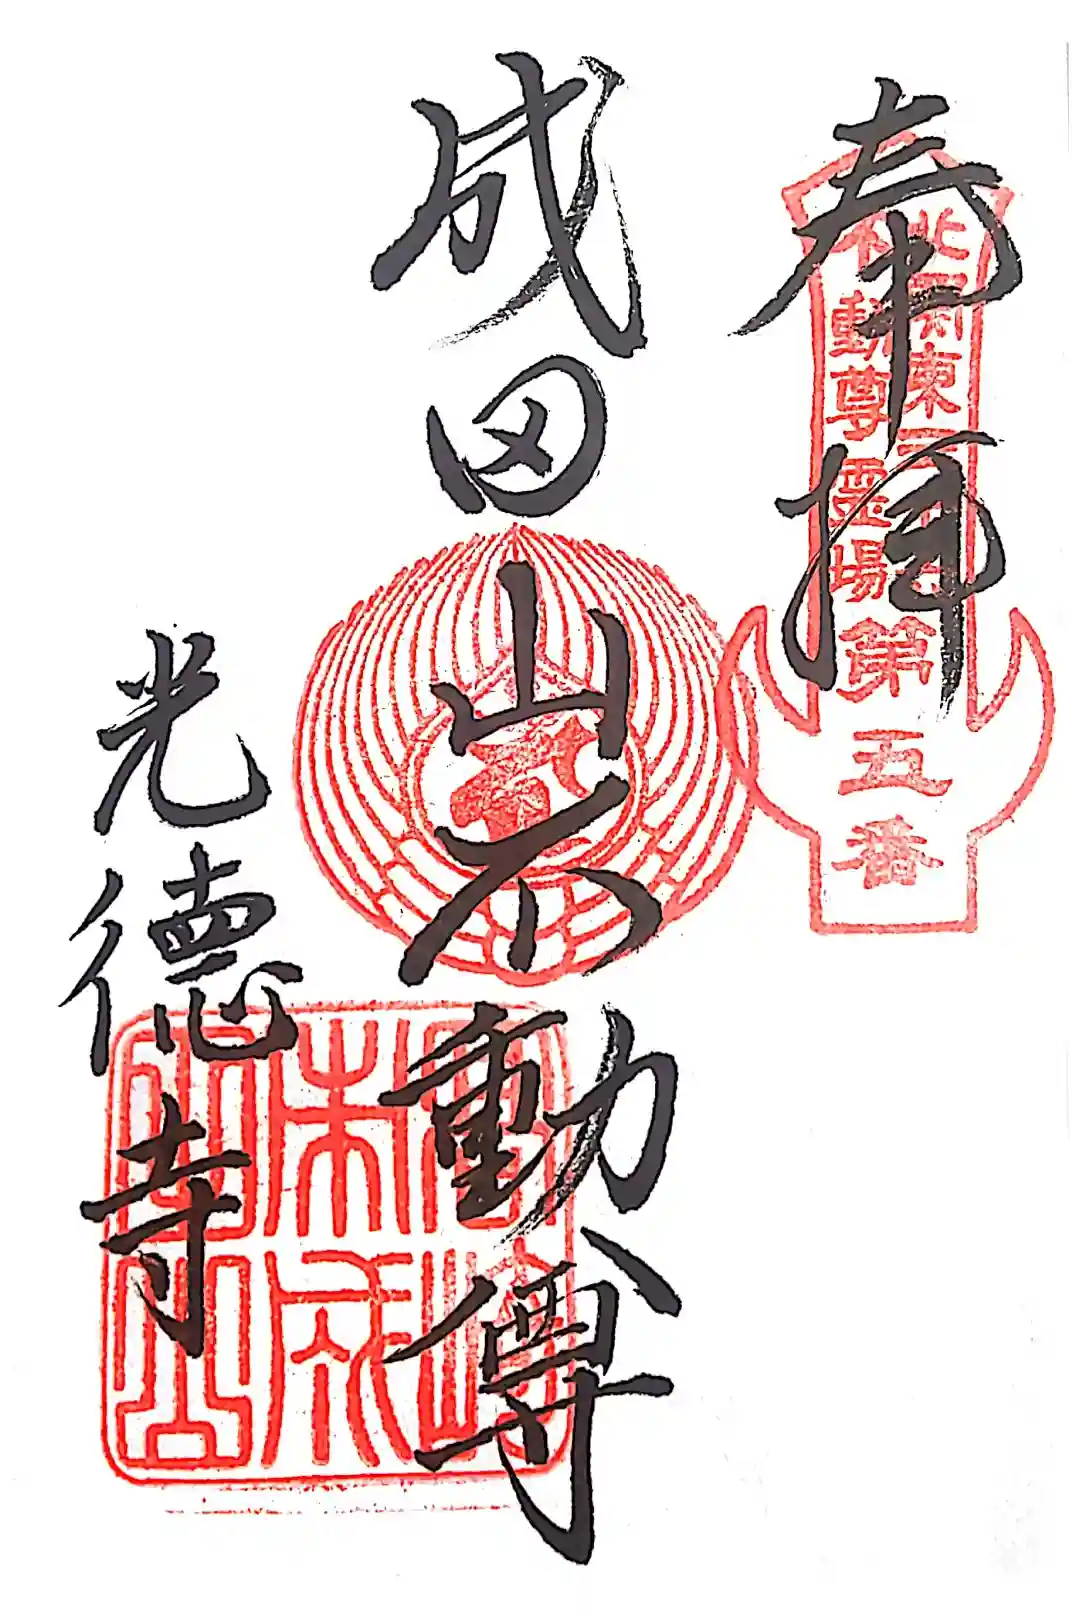 奉拝
北関東三十六
不動尊霊場
第五番
成田山不動尊
光徳寺